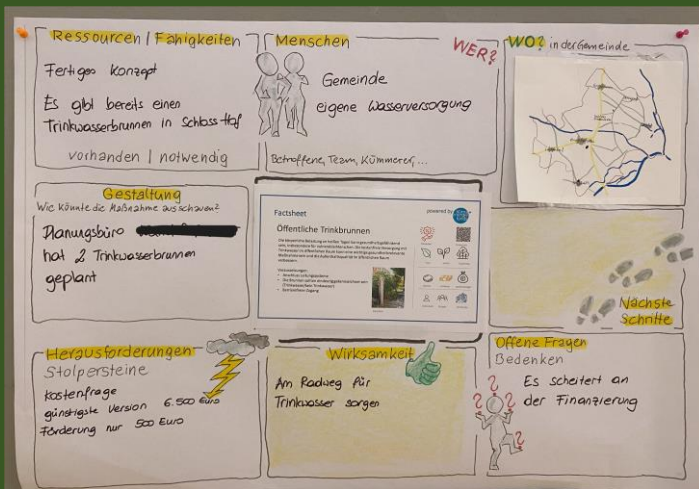 Ressourcen / Fähigkeiten
Fertiges Konzept
Es gibt bereits einen
Trinkwasserbrunnen in Schloss Hof
vorhanden / notwendig
Menschen
WER?
Gemeinde
eigene Wasserversorgung
Betroffene, Team, Kümmerer, ...
WO? in der Gemeinde
Gestaltung
Wie könnte die Maßnahme ausschauen?
Planungsbüro
hat 2 Trinkwasserbrunnen
geplant
Factsheet
powered by
Öffentliche Trinkbrunnen
Nächste
Schritte
Herausforderungen
Stolpersteine
Kostenfrage
günstigste Version 6.500 Euro
Förderung nur 500 Euro
Wirksamkeit
Am Radweg für
Trinkwasser sorgen
Offene Fragen
Bedenken
Es scheitert an
der Finanzierung